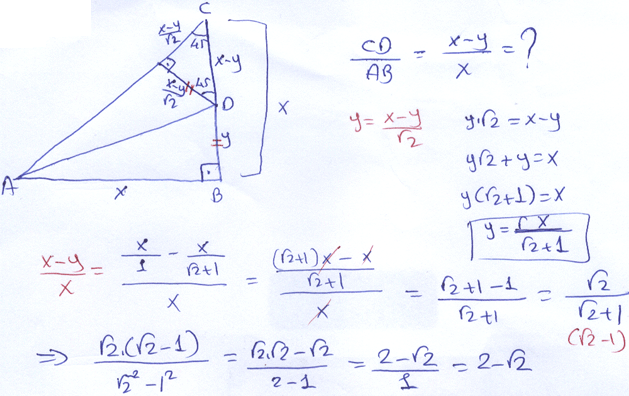 C
x-y/√2 45 x-y
x-y/√2 45 D x
y
A x B
CD/AB = x-y/x = ?
y = x-y/√2 y.√2 = x-y
y√2 + y = x
y(√2+1) = x
y = x/√2+1
x-y/x = x/1 - x/√2+1 / x = (√2+1)x - x/√2+1 / x = √2+1-1/√2+1 = √2/√2+1
(√2-1)
⇒ √2.(√2-1)/√2²-1² = √2.√2-√2/2-1 = 2-√2/1 = 2-√2